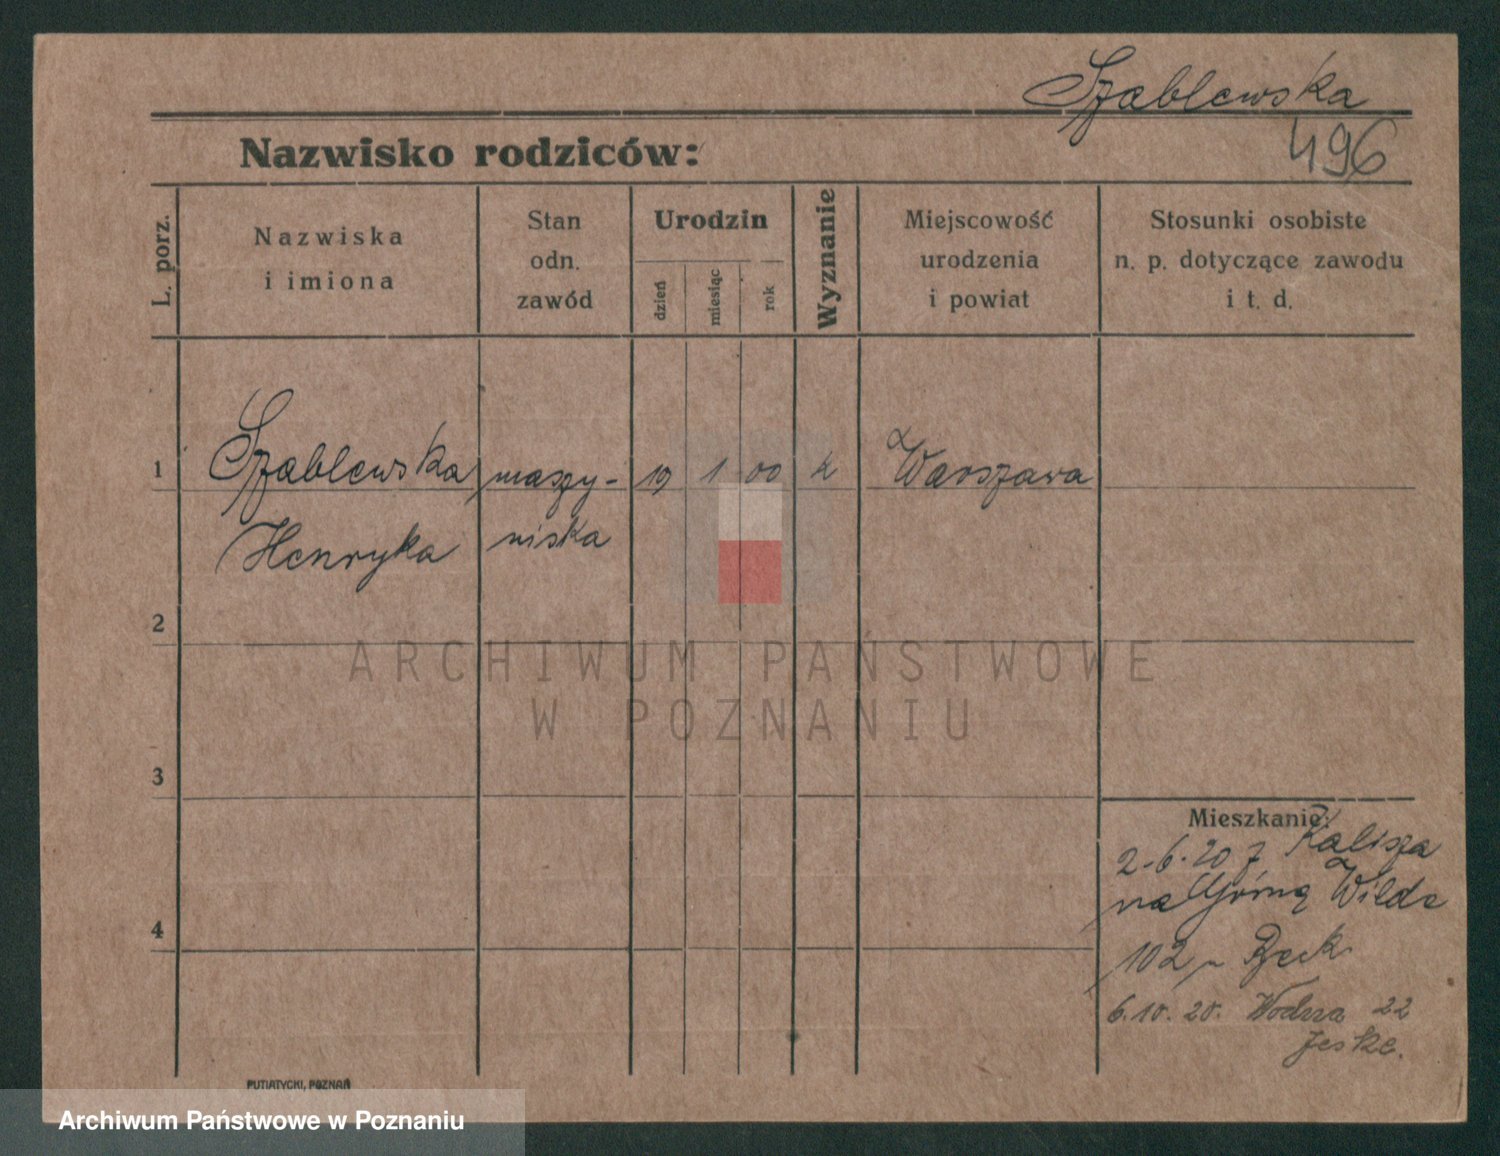 Szablewska
496
Nazwisko rodziców:
L. porz.
Nazwiska
i imiona
Stan
odn.
zawód
Urodzin
dzień
miesiąc
rok
Wyznanie
Miejscowość
urodzenia
i powiat
Stosunki osobiste
n. p. dotyczące zawodu
i t. d.
1 Szablewska maszy- 19 1 00 k Warszawa
Henryka niska
2
ARCHIWUM PAŃSTWOWE
W POZNANIU
3
Mieszkanie:
2.6.20 z Kalisza
na Górną Wildę
4
102 Beck
6.10.20. Wodna 22
Jeske.
PUTIATYCKI, POZNAŃ
Archiwum Państwowe w Poznaniu